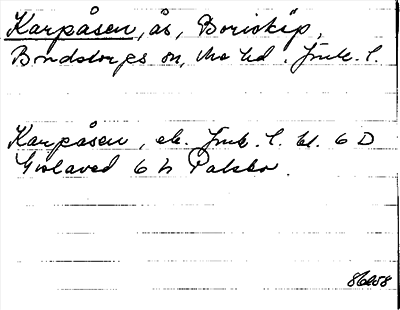 Karpåsen, ås, Boriskip,
Bondstorps sn, Mo hd. Jönk. l.
Karpåsen, ek. Jönk. l. bl. 6 D
Gislaved 6 h Palsbo.